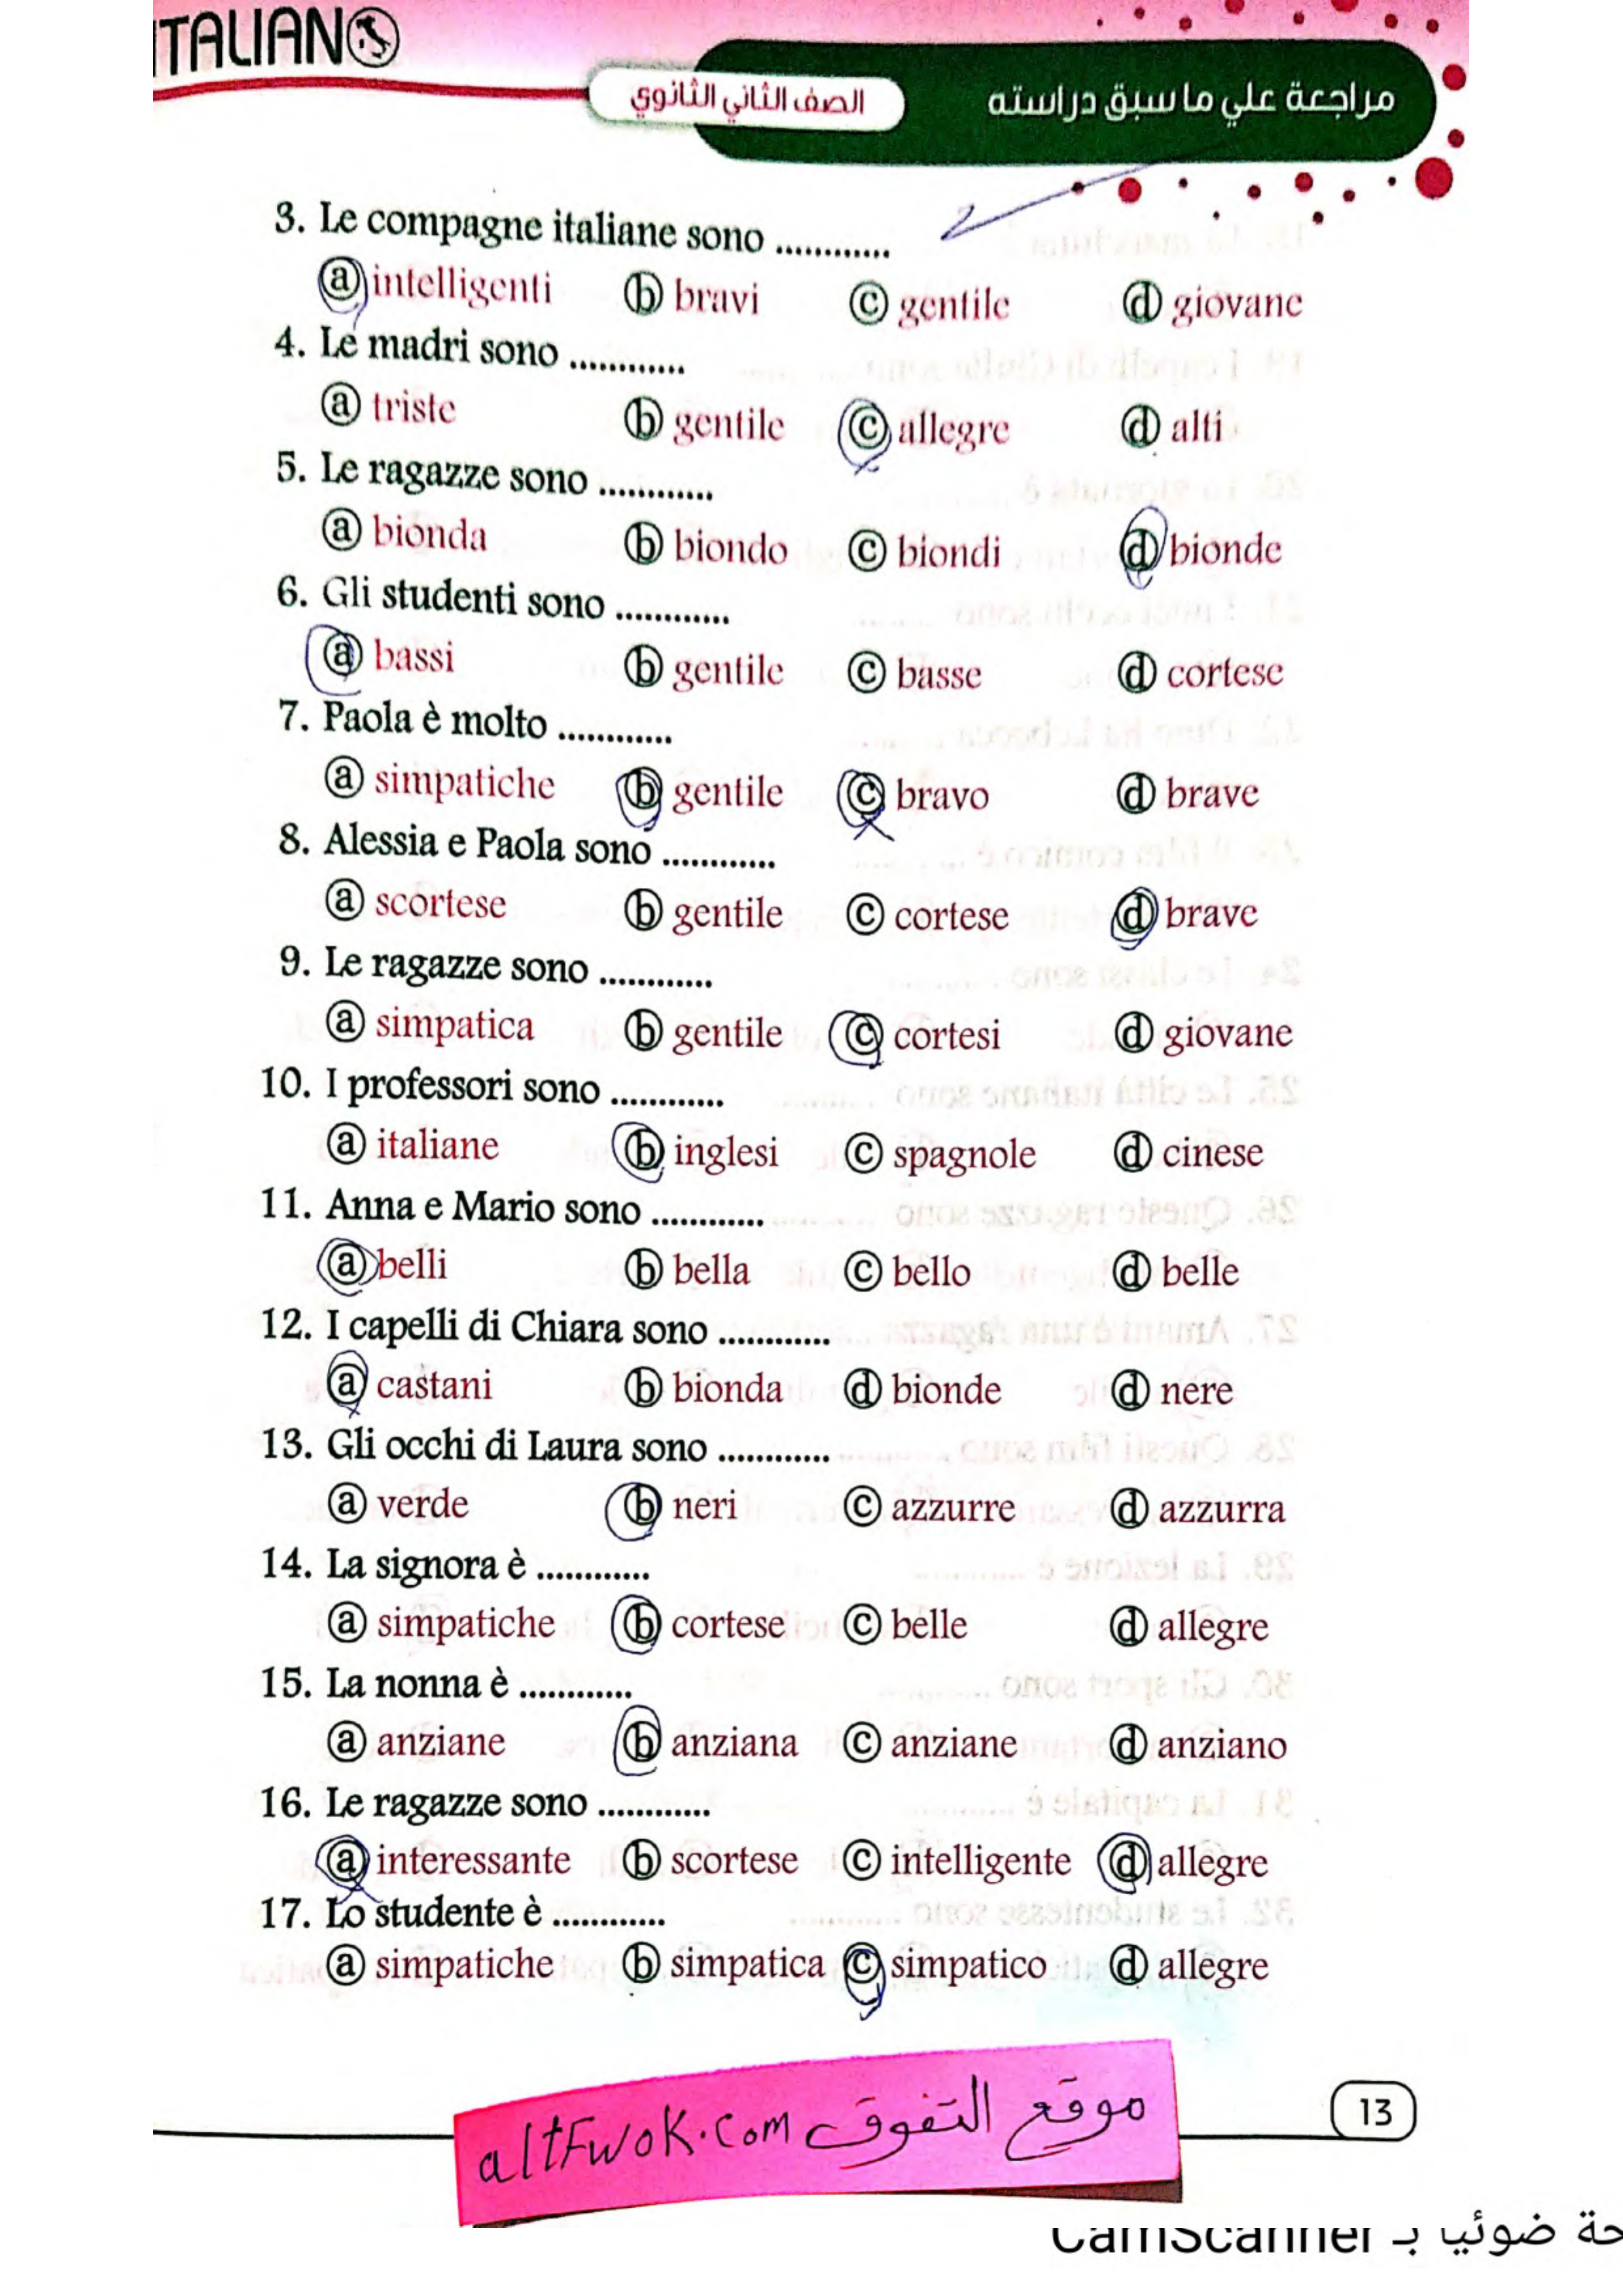 ITALIANO
مراجعة علي ما سبق دراسته
الصف الثاني الثانوي
3. Le compagne italiane sono ............
a intelligenti b bravi c gentile d giovane
4. Le madri sono ............
a triste b gentile c allegre d alti
5. Le ragazze sono ............
a bionda b biondo c biondi d bionde
6. Gli studenti sono ............
a bassi b gentile c basse d cortese
7. Paola è molto ............
a simpatiche b gentile c bravo d brave
8. Alessia e Paola sono ............
a scortese b gentile c cortese d brave
9. Le ragazze sono ............
a simpatica b gentile c cortesi d giovane
10. I professori sono ............
a italiane b inglesi c spagnole d cinese
11. Anna e Mario sono ............
a belli b bella c bello d belle
12. I capelli di Chiara sono ............
a castani b bionda d bionde d nere
13. Gli occhi di Laura sono ............
a verde b neri c azzurre d azzurra
14. La signora è ............
a simpatiche b cortese c belle d allegre
15. La nonna è ............
a anziane b anziana c anziane d anziano
16. Le ragazze sono ............
a interessante b scortese c intelligente d allegre
17. Lo studente è ............
a simpatiche b simpatica c simpatico d allegre
موقع التفوق altFwok.com
13
حة ضوئيا بـ CamScanner